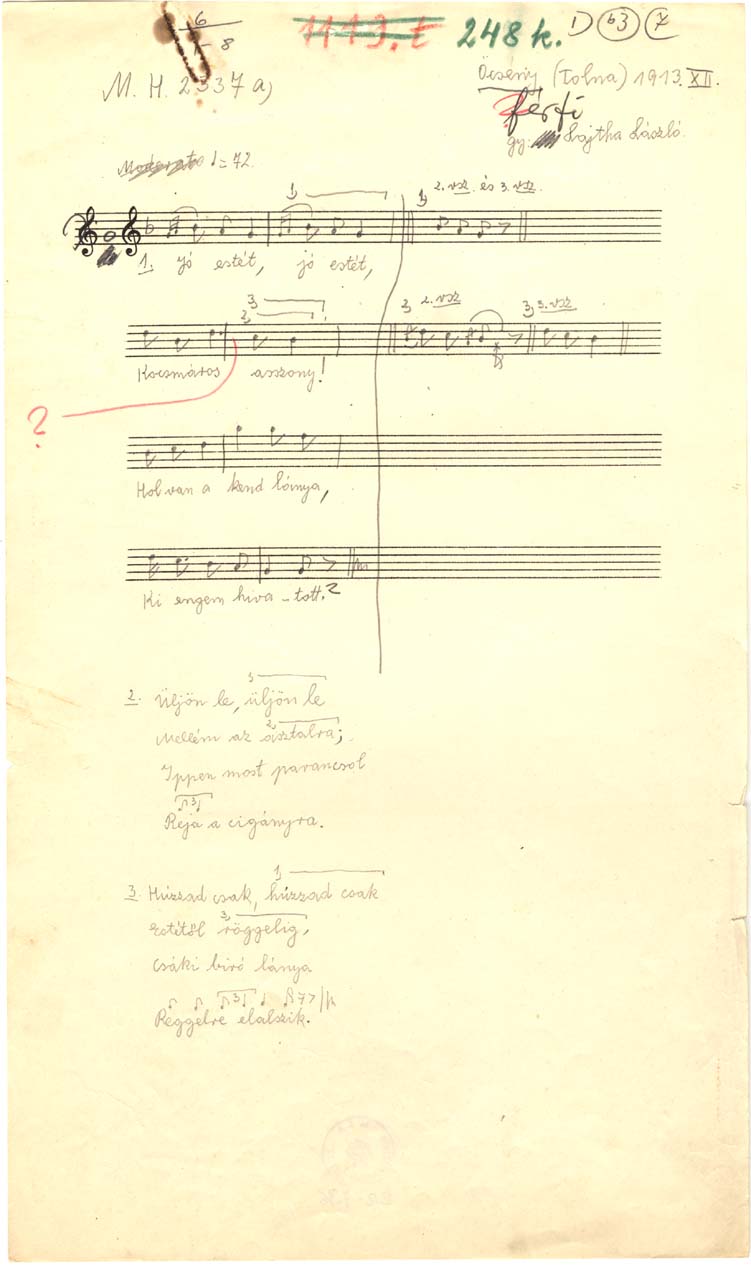 6
1-8
1193. t 248 k. 1) b3 7
M. H. 2337 a)
Őcsény (Tolna) 1913. XII.
férfi
gy: Lajtha László.
Moderato ♩= 72.
1, 1, 2. vsz. és 3. vsz.
1. Jó estét, jó estét,
3,
2, 2, 2. vsz 3, 3. vsz
Kocsmáros asszony!
?
Hol van a kend lánya,
Ki engem hiva - tott.?
1,
2. Üljön le, üljön le
2,
Mellém az asztalra;
Ippen most parancsol
3
Réja a cigányra.
1,
3. Húzzad csak, húzzad csak
3,
Estétől röggelig,
Csáki biró lánya
3
Reggelre elalszik.